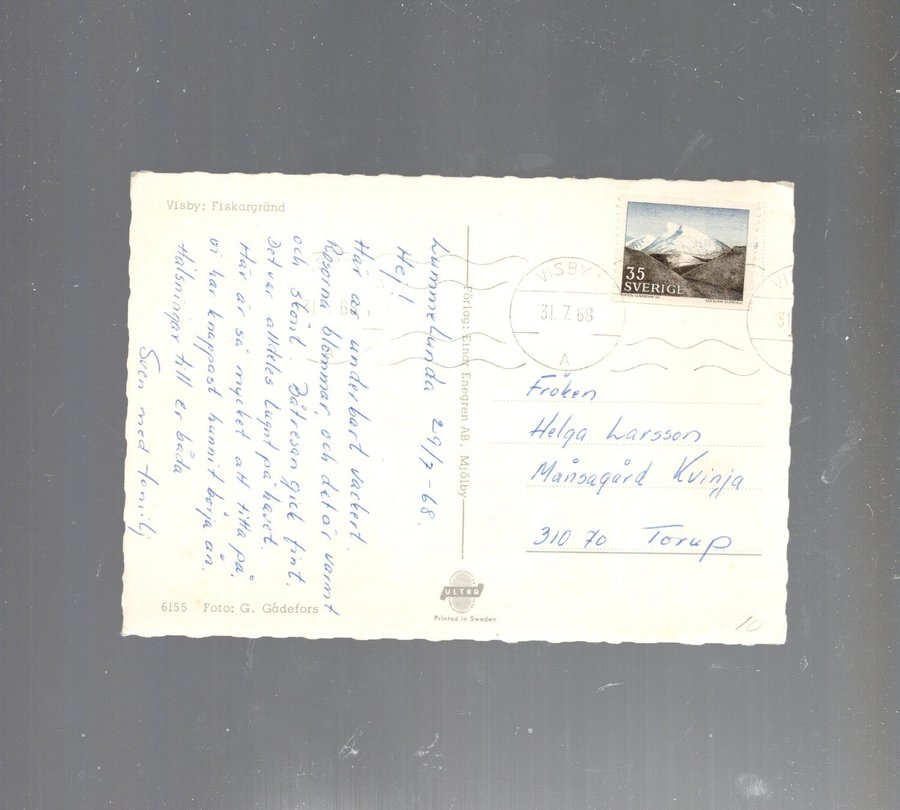 Visby: Fiskargränd
Lummelunda 29/7-68.
Hej!
Här är underbart vackert.
Rosorna blommar, och det är varmt
och skönt. Båtresan gick fint.
Det var alldeles lugnt på havet.
Här är så mycket att titta på,
vi har knappast hunnit börja än.
Hälsningar till er båda
Sven med familj
6155 Foto: G. Gådefors
Förlag: Einar Enegren AB, Mjölby
ULTRA
Printed in Sweden
35
SVERIGE
VISBY
31.7.68
A
Fröken
Helga Larsson
Månsagård Kvinja
310 70 Torup
10